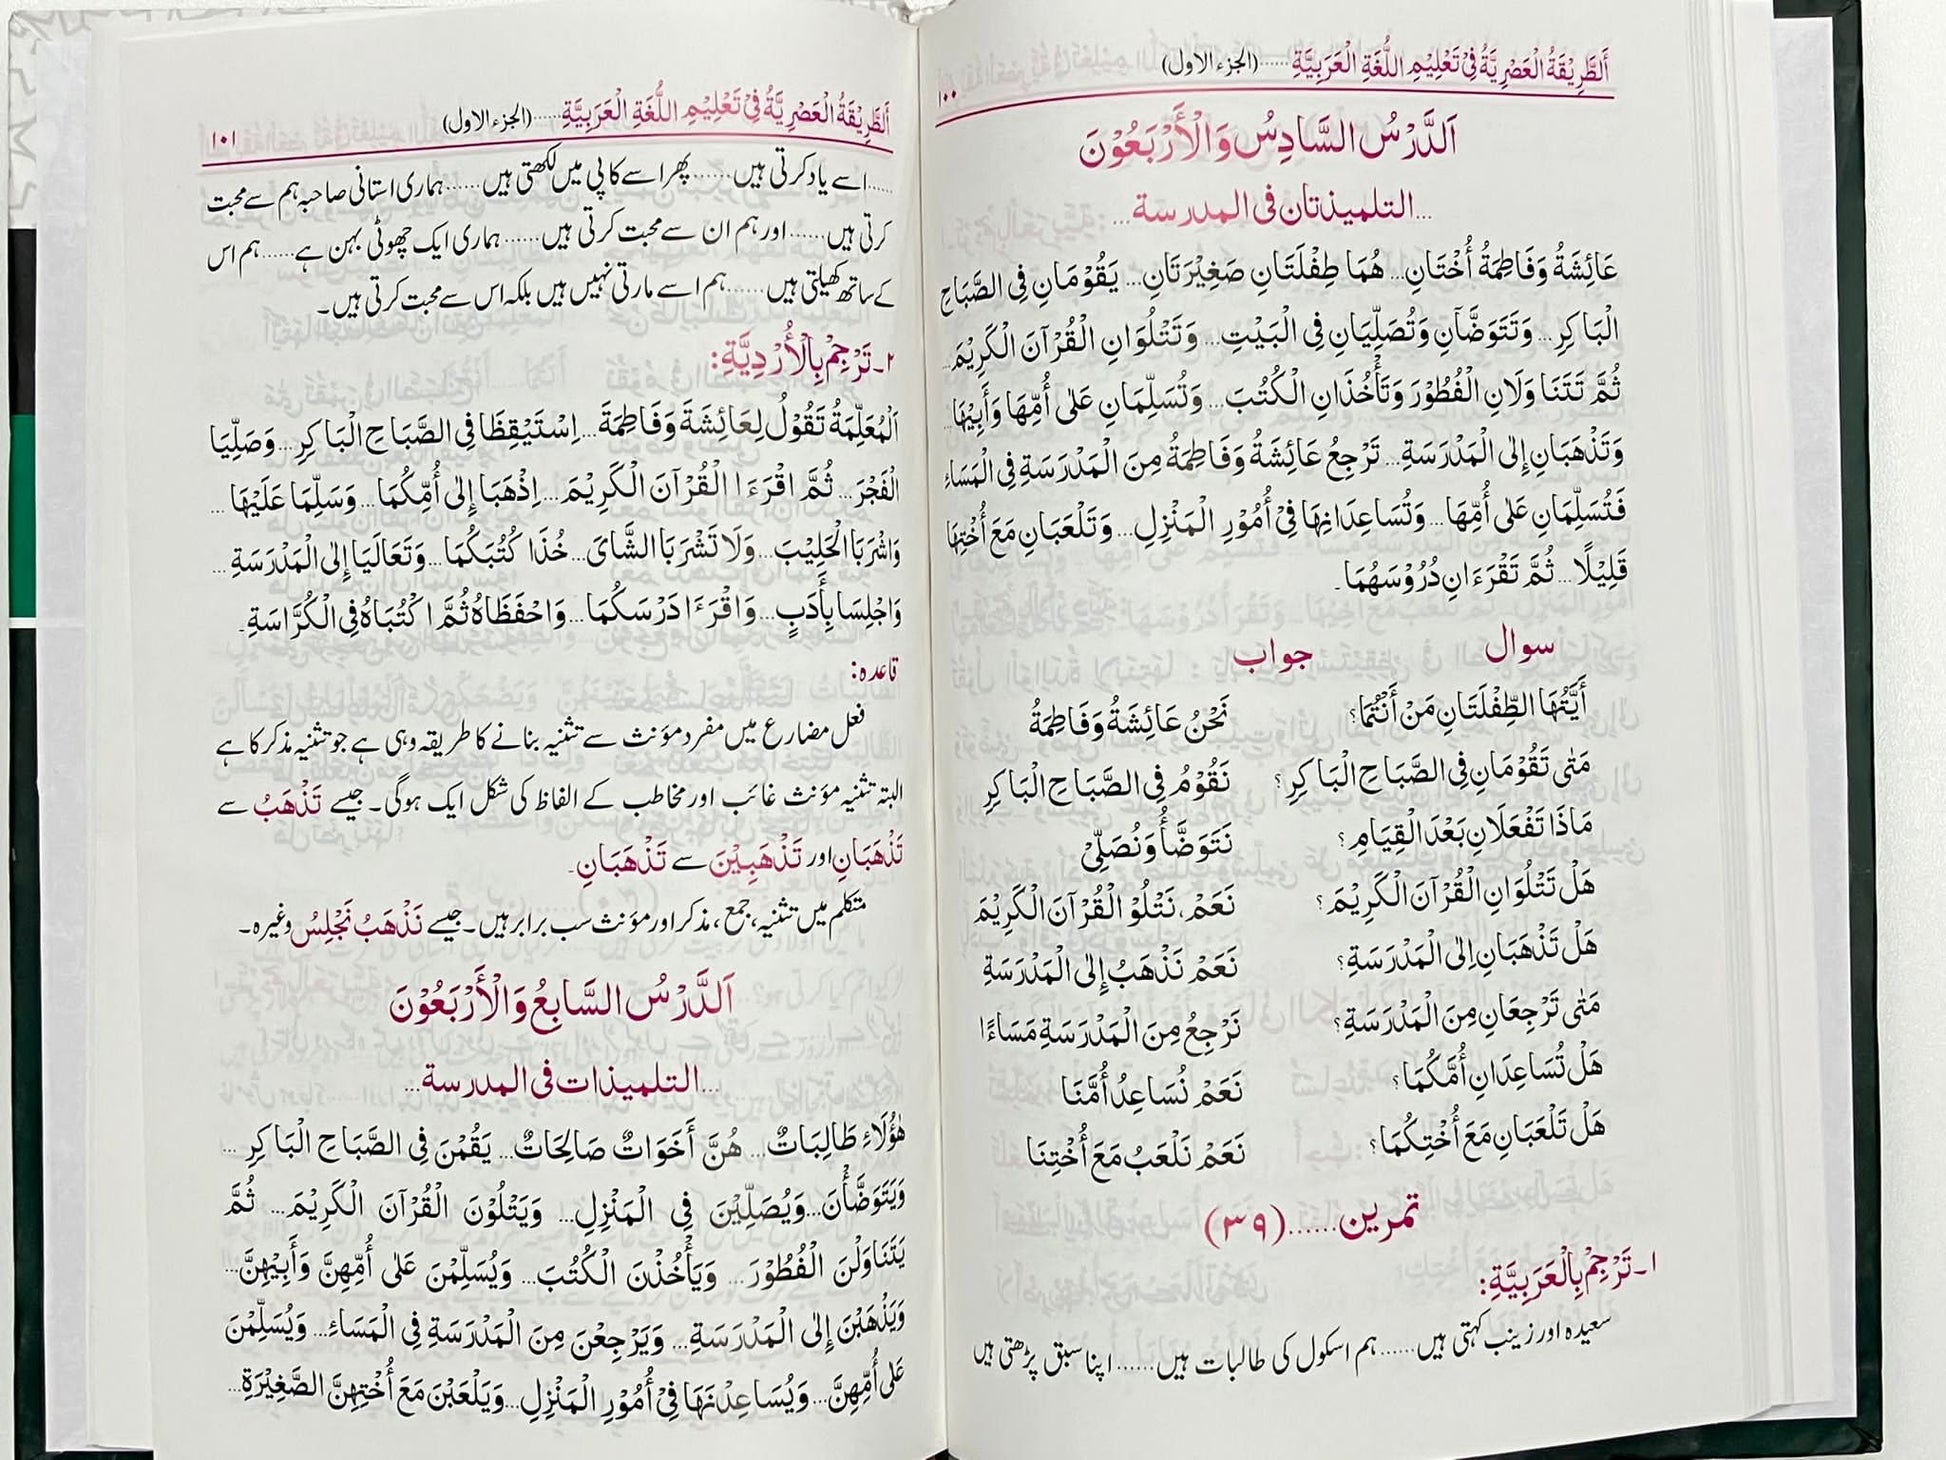 اَلطَّرِيْقَةُ الْعَصْرِيَّةُ فِيْ تَعْلِيْمِ اللُّغَةِ الْعَرَبِيَّةِ......(الجزء الاول) ۱۰۰
اَلدَّرْسُ السَّادِسُ وَالْأَرْبَعُوْنَ
...التلميذتان فى المدرسة...
عَائِشَةُ وَفَاطِمَةُ أُخْتَانِ... هُمَا طِفْلَتَانِ صَغِيْرَتَانِ... يَقُوْمَانِ فِى الصَّبَاحِ
الْبَاكِرِ... وَتَتَوَضَّآنِ وَتُصَلِّيَانِ فِى الْبَيْتِ... وَتَتْلُوَانِ الْقُرْآنَ الْكَرِيْمَ...
ثُمَّ تَتَنَاوَلَانِ الْفُطُوْرَ وَتَأْخُذَانِ الْكُتُبَ... وَتُسَلِّمَانِ عَلٰى أُمِّهَا وَأَبِيْهَا...
وَتَذْهَبَانِ إِلَى الْمَدْرَسَةِ... تَرْجِعُ عَائِشَةُ وَفَاطِمَةُ مِنَ الْمَدْرَسَةِ فِى الْمَسَاءِ
فَتُسَلِّمَانِ عَلٰى أُمِّهَا... وَتُسَاعِدَانِهَا فِيْ أُمُوْرِ الْمَنْزِلِ... وَتَلْعَبَانِ مَعَ أُخْتِهَا
قَلِيْلًا... ثُمَّ تَقْرَءَانِ دُرُوْسَهُمَا۔
سوال جواب
أَيَّتُهَا الطِّفْلَتَانِ مَنْ أَنْتُمَا؟ نَحْنُ عَائِشَةُ وَفَاطِمَةُ
مَتٰى تَقُوْمَانِ فِى الصَّبَاحِ الْبَاكِرِ؟ نَقُوْمُ فِى الصَّبَاحِ الْبَاكِرِ
مَاذَا تَفْعَلَانِ بَعْدَ الْقِيَامِ؟ نَتَوَضَّأُ وَنُصَلِّىْ
هَلْ تَتْلُوَانِ الْقُرْآنَ الْكَرِيْمَ؟ نَعَمْ، نَتْلُوْ الْقُرْآنَ الْكَرِيْمَ
هَلْ تَذْهَبَانِ اِلَى الْمَدْرَسَةِ؟ نَعَمْ نَذْهَبُ إِلَى الْمَدْرَسَةِ
مَتٰى تَرْجِعَانِ مِنَ الْمَدْرَسَةِ؟ نَرْجِعُ مِنَ الْمَدْرَسَةِ مَسَاءً ا
هَلْ تُسَاعِدَانِ أُمَّكُمَا؟ نَعَمْ نُسَاعِدُ أُمَّنَا
هَلْ تَلْعَبَانِ مَعَ أُخْتِكُمَا؟ نَعَمْ نَلْعَبُ مَعَ أُخْتِنَا
تمرین......(۳۹)
۱۔تَرْجِمْ بِالْعَرَبِيَّةِ:
سعیدہ اور زینب کہتی ہیں......ہم اسکول کی طالبات ہیں......اپنا سبق پڑھتی ہیں
اَلطَّرِيْقَةُ الْعَصْرِيَّةُ فِيْ تَعْلِيْمِ اللُّغَةِ الْعَرَبِيَّةِ......(الجزء الاول) ۱۰۱
......اسے یاد کرتی ہیں......پھر اسے کاپی میں لکھتی ہیں......ہماری استانی صاحبہ ہم سے محبت
کرتی ہیں......اور ہم ان سے محبت کرتی ہیں......ہماری ایک چھوٹی بہن ہے......ہم اس
کے ساتھ کھیلتی ہیں......ہم اسے مارتی نہیں ہیں بلکہ اس سے محبت کرتی ہیں۔
۲۔تَرْجِمْ بِالْأُرْدِيَّةِ:
اَلْمُعَلِّمَةُ تَقُوْلُ لِعَائِشَةَ وَفَاطِمَةَ...اِسْتَيْقِظَا فِى الصَّبَاحِ الْبَاكِرِ...وَصَلِّيَا
الْفَجْرَ... ثُمَّ اقْرَءَ ا الْقُرْآنَ الْكَرِيْمَ...اِذْهَبَا إِلٰى أُمِّكُمَا...وَسَلِّمَا عَلَيْهَا...
وَاشْرَبَا الْحَلِيْبَ...وَلَا تَشْرَبَا الشَّاىَ...خُذَا كُتُبَكُمَا...وَتَعَالَيَا إِلَى الْمَدْرَسَةِ...
وَاجْلِسَا بِأَدَبٍ...وَاقْرَءَ ا دَرْسَكُمَا...وَاحْفَظَاهُ ثُمَّ اكْتُبَاهُ فِى الْكُرَّاسَةِ۔
قاعدہ:
فعل مضارع میں مفرد مؤنث سے تثنیہ بنانے کا طریقہ وہی ہے جو تثنیہ مذکر کا ہے
البتہ تثنیہ مؤنث غائب اور مخاطب کے الفاظ کی شکل ایک ہوگی۔ جیسے تَذْهَبُ سے
تَذْهَبَانِ اور تَذْهَبِيْنَ سے تَذْهَبَانِ۔
متکلم میں تثنیہ، جمع، مذکر اور مؤنث سب برابر ہیں۔ جیسے نَذْهَبُ نَجْلِسُ وغیرہ۔
اَلدَّرْسُ السَّابِعُ وَالْأَرْبَعُوْنَ
...التلميذات فى المدرسة...
هٰؤُلَاءِ طَالِبَاتٌ... هُنَّ أَخَوَاتٌ صَالِحَاتٌ... يَقُمْنَ فِى الصَّبَاحِ الْبَاكِرِ...
وَيَتَوَضَّأْنَ...وَيُصَلِّيْنَ فِى الْمَنْزِلِ... وَيَتْلُوْنَ الْقُرْآنَ الْكَرِيْمَ... ثُمَّ
يَتَنَاوَلْنَ الْفُطُوْرَ... وَيَأْخُذْنَ الْكُتُبَ... وَيُسَلِّمْنَ عَلٰى أُمِّهِنَّ وَأَبِيْهِنَّ...
وَيَذْهَبْنَ إِلَى الْمَدْرَسَةِ... وَيَرْجِعْنَ مِنَ الْمَدْرَسَةِ فِى الْمَسَاءِ... وَيُسَلِّمْنَ
عَلٰى أُمِّهِنَّ...وَيُسَاعِدْنَهَا فِيْ أُمُوْرِ الْمَنْزِلِ...وَيَلْعَبْنَ مَعَ أُخْتِهِنَّ الصَّغِيْرَةِ...